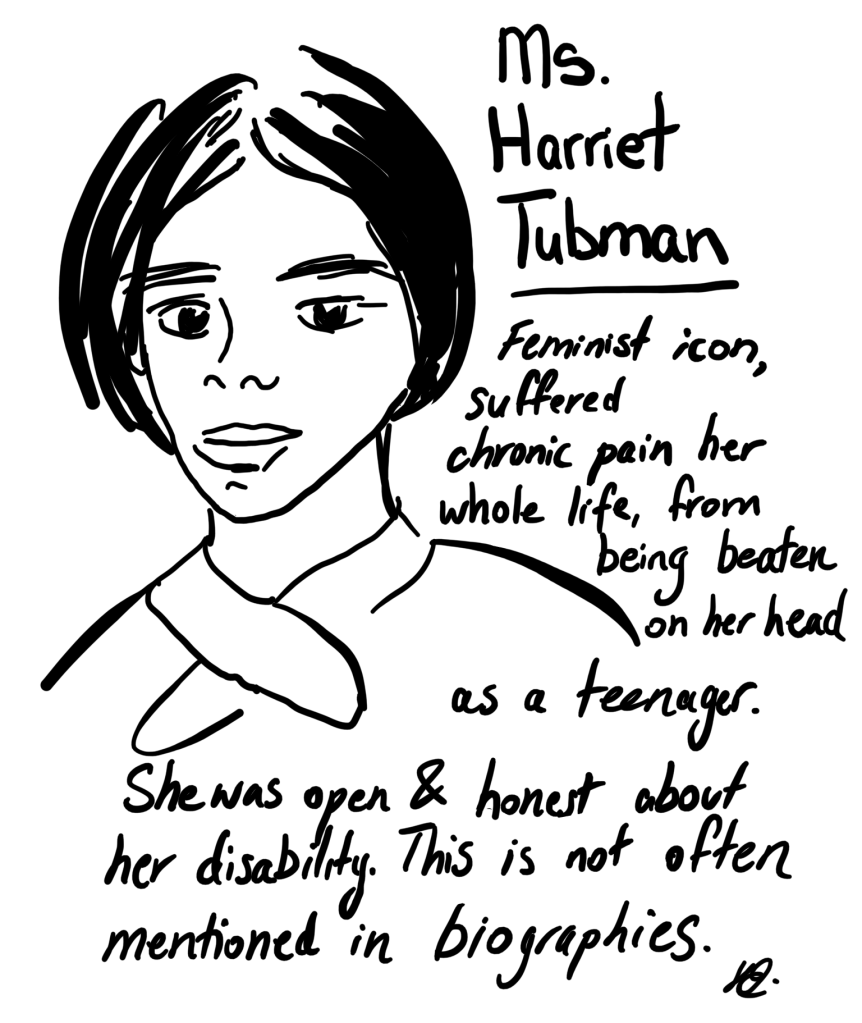 Ms.
Harriet
Tubman
Feminist icon,
suffered
chronic pain her
whole life, from
being beaten
on her head
as a teenager.
She was open & honest about
her disability. This is not often
mentioned in biographies.